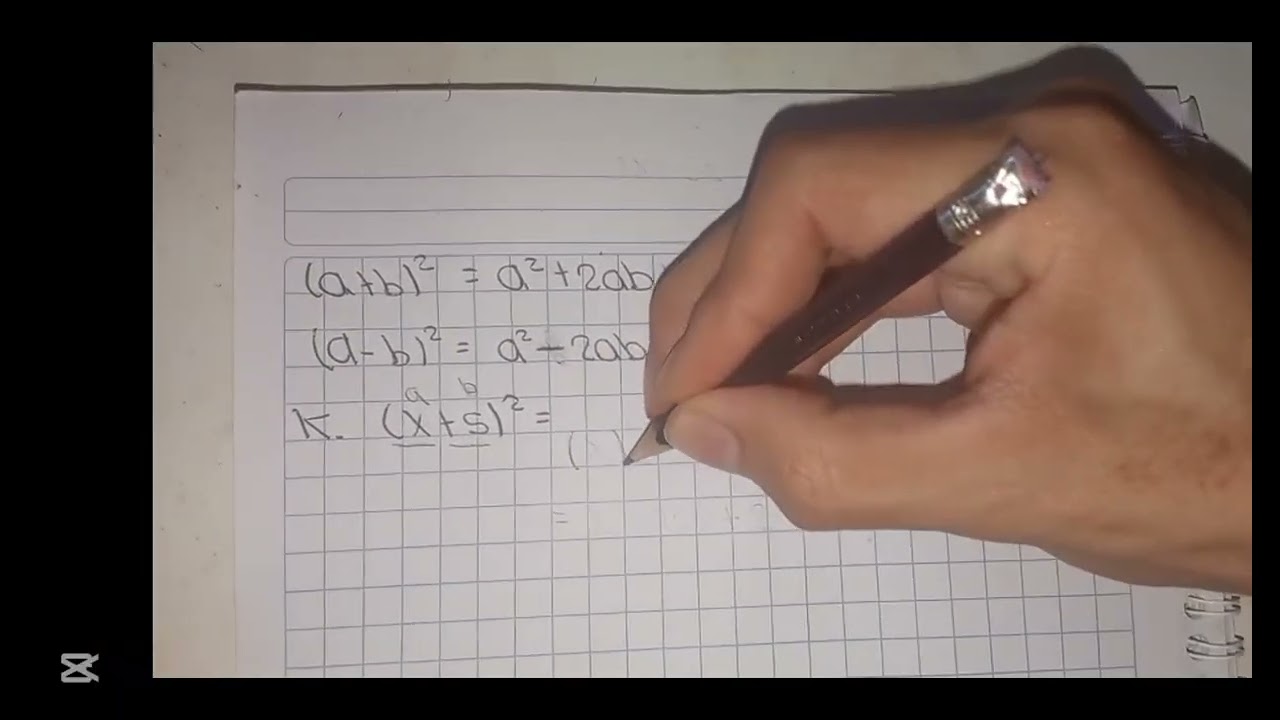 (a+b)² = a² + 2ab
(a-b)² = a² - 2ab
a b
K. (x+5)² =
( )
=